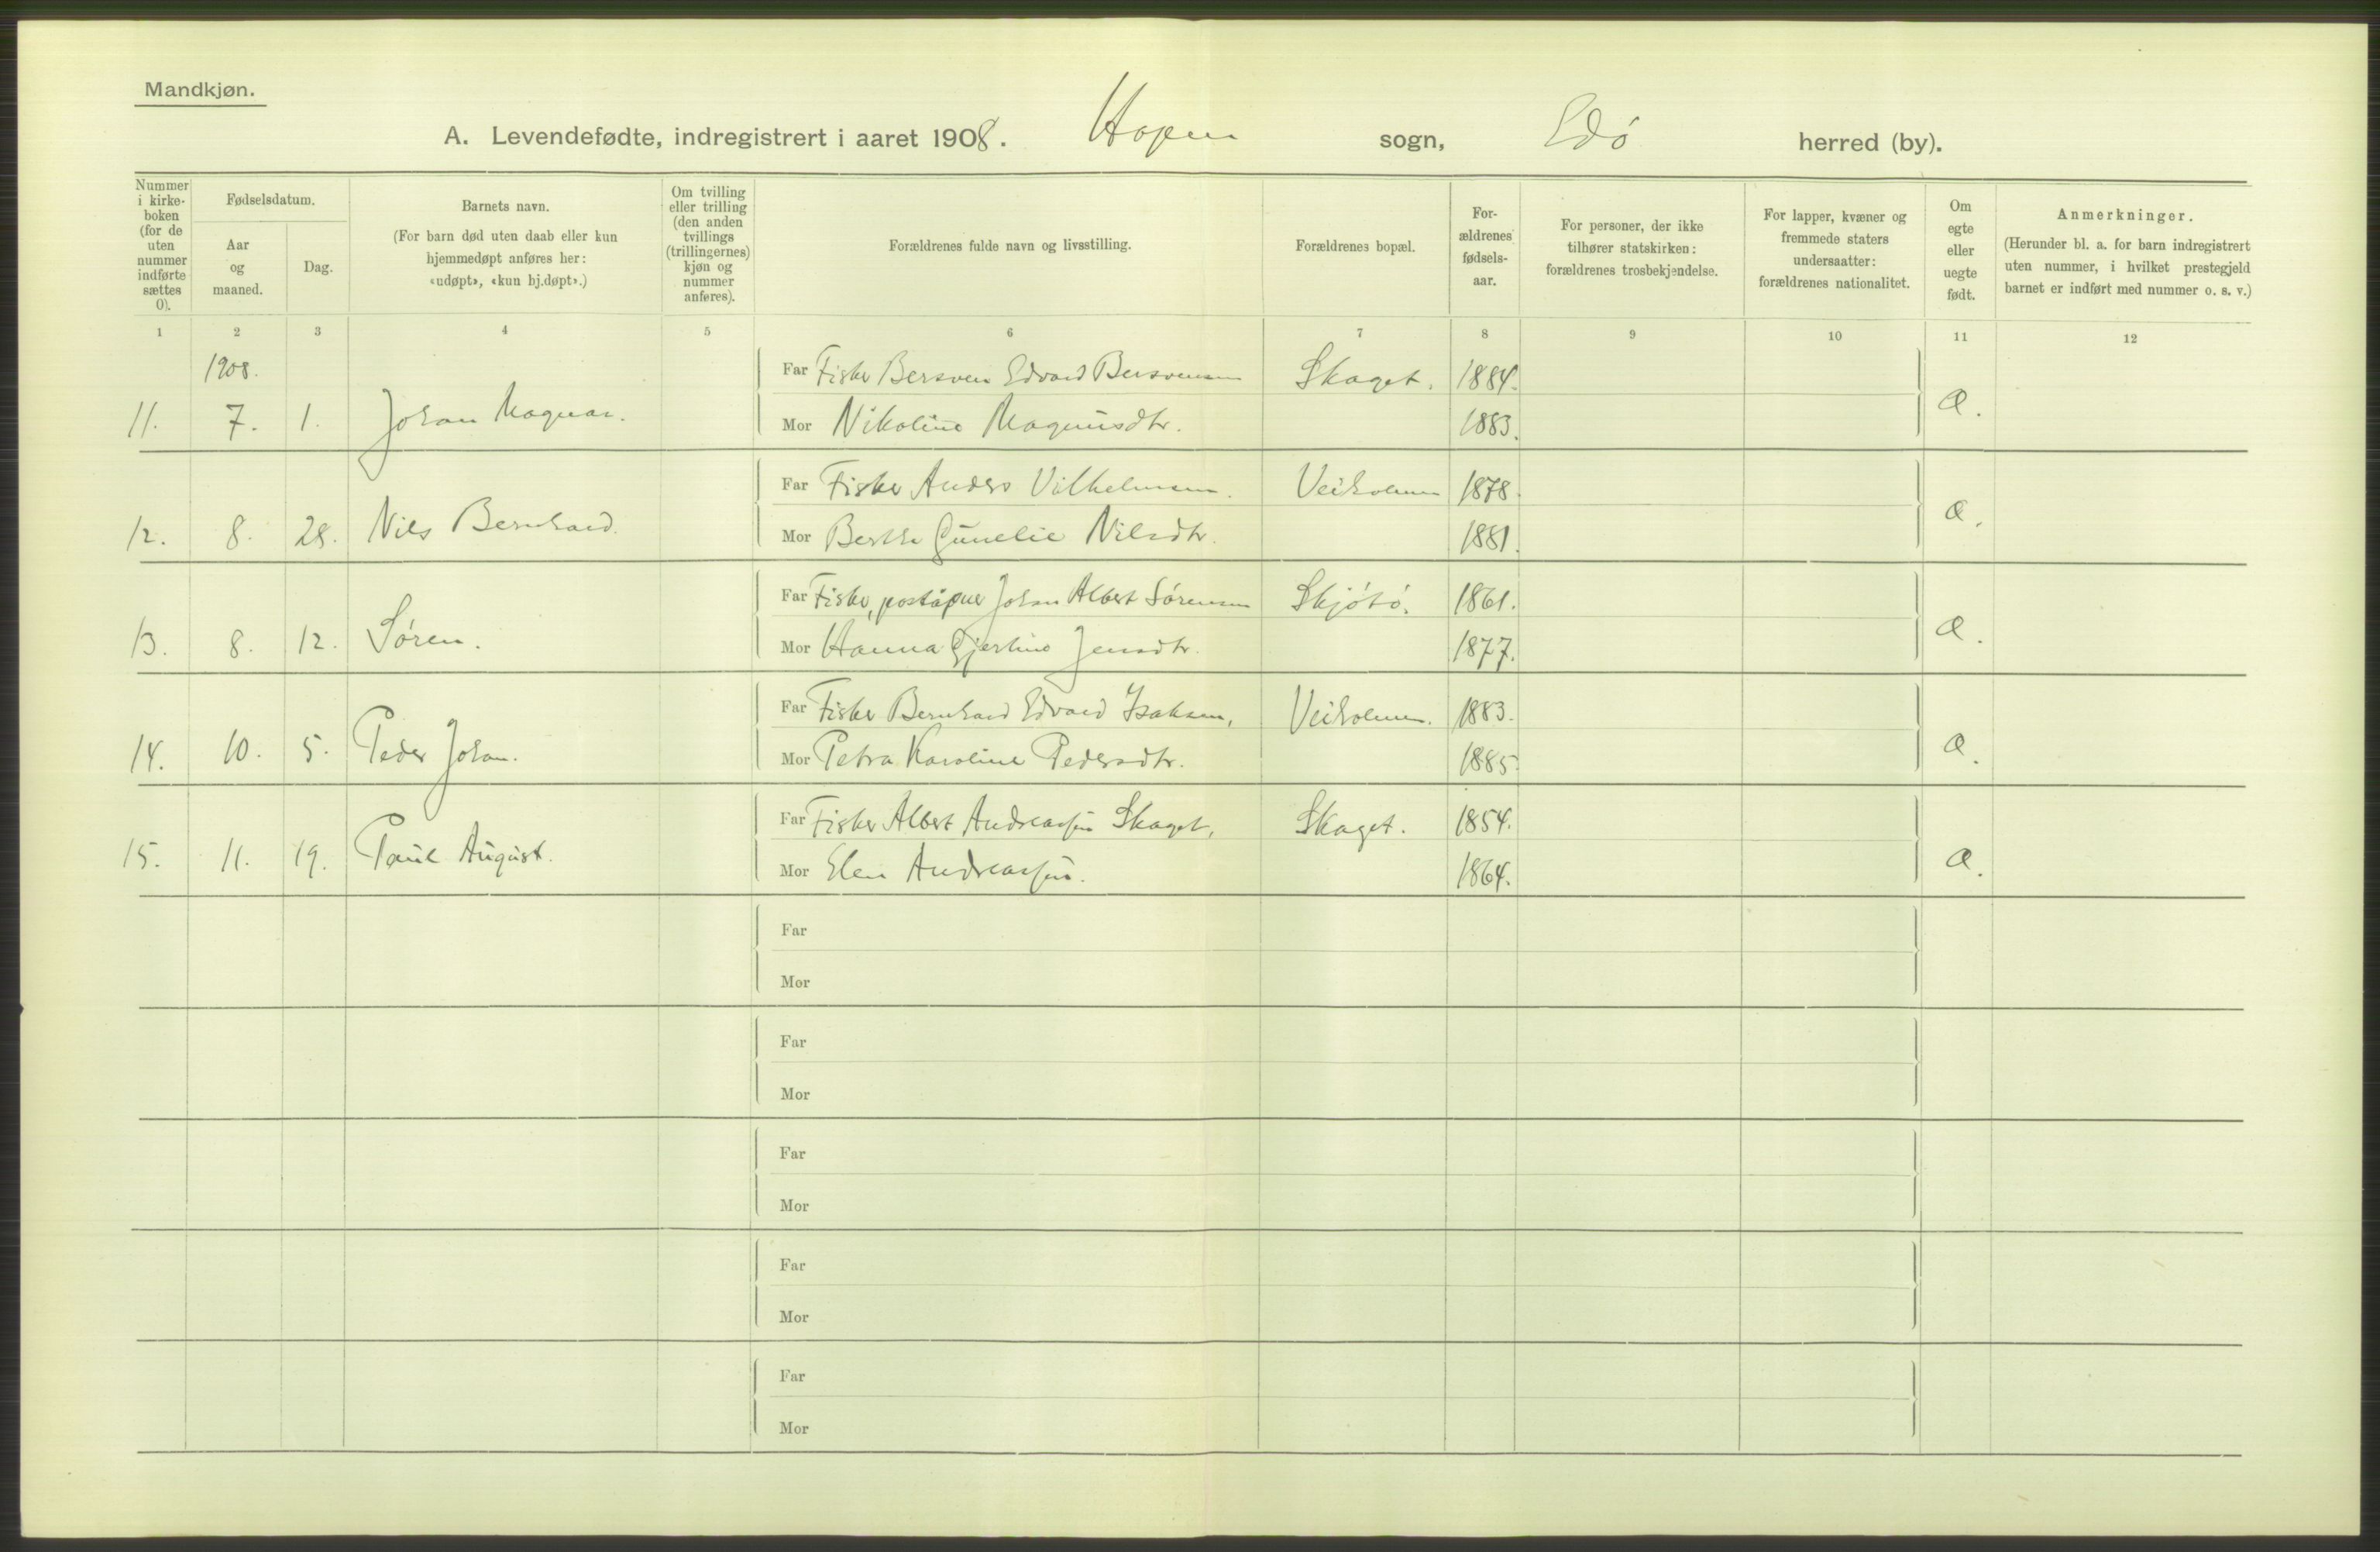 Mandkjøn.
A. Levendefødte, indregistrert i aaret 1908. Hopen sogn, Edö herred (by).
Nummer i kirke-boken (for de uten nummer indførte sættes 0).
Fødselsdatum.
Aar og maaned.
Dag.
Barnets navn.
(For barn død uten daab eller kun hjemmedøpt anføres her: «udøpt», «kun hj.døpt».)
Om tvilling eller trilling (den anden tvillings (trillingernes) kjøn og nummer anføres).
Forældrenes fulde navn og livsstilling.
Forældrenes bopæl.
For-ældrenes fødsels-aar.
For personer, der ikke tilhører statskirken: forældrenes trosbekjendelse.
For lapper, kvæner og fremmede staters undersaatter: forældrenes nationalitet.
Om egte eller uegte født.
Anmerkninger.
(Herunder bl. a. for barn indregistrert uten nummer, i hvilket prestegjeld barnet er indført med nummer o. s. v.)
1 2 3 4 5 6 7 8 9 10 11 12
1908.
Far Fisker Bersven Edvard Bersvensen Skaget. 1884.
11. 7. 1. Johan Magnar. Mor Nikoline Magnusdtr. 1883. Æ.
Far Fisker Anders Vilhelmsen. Veiholmen 1878.
12. 8. 28. Nils Bernhard. Mor Berthe Gunelie Nilsdtr. 1881. Æ.
Far Fisker, poståpner Johan Albert Sörensen Skjölö. 1861.
13. 8. 12. Sören. Mor Hanna Gjertine Jensdtr. 1877. Æ.
Far Fisker Bernhard Edvard Isaksen, Veiholmen. 1883.
14. 10. 5. Peder Johan. Mor Petra Karoline Pedersdtr. 1885. Æ.
Far Fisker Albert Andreassen Skaget, Skaget. 1854.
15. 11. 19. Paul August. Mor Elen Andreassen. 1864. Æ.
Far
Mor
Far
Mor
Far
Mor
Far
Mor
Far
Mor